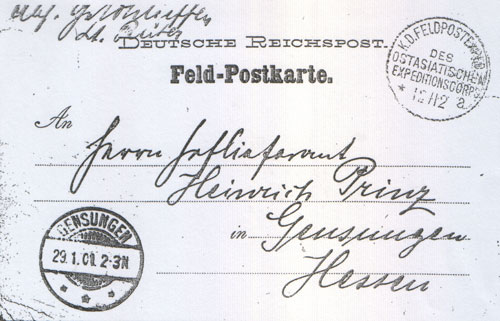 Lt.
DEUTSCHE REICHSPOST.
Feld-Postkarte.
K.D. FELDPOSTEXPED.
DES
OSTASIATISCHEN
EXPEDITIONSCORPS
* 12/12 a.
An
Herrn Hoflieferant
Heinrich Prinz
in Gensungen
Hessen
GENSUNGEN
29.1.01. 2-3N